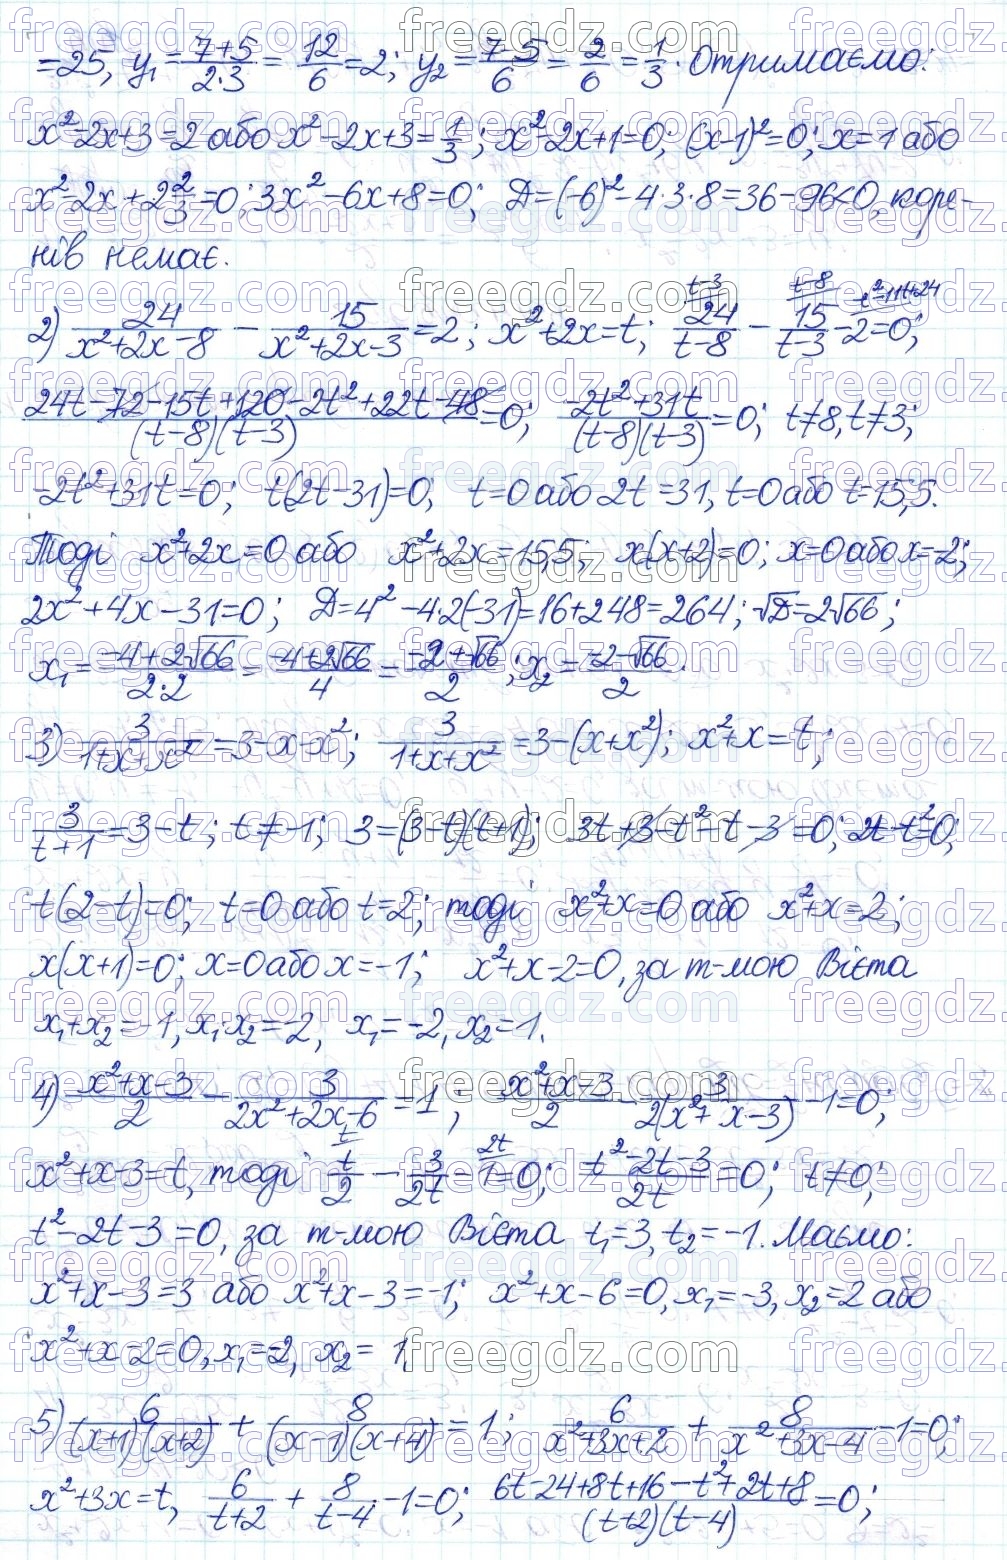 =25, y₁ = (7+5)/(2·3) = 12/6 = 2; y₂ = (7-5)/6 = 2/6 = 1/3. Отримаємо:
x²-2x+3=2 або x²-2x+3=1/3; x²-2x+1=0; (x-1)²=0; x=1 або
x²-2x+2 2/3=0; 3x²-6x+8=0; Д=(-6)²-4·3·8=36-96<0, коре-
нів немає.
2) 24/(x²+2x-8) - 15/(x²+2x-3) = 2; x²+2x=t; 24/(t-8) - 15/(t-3) - 2 = 0; t-3 t-8 t²-11t+24
(24t-72-15t+120-2t²+22t-48)/((t-8)(t-3)) = 0; (-2t²+31t)/((t-8)(t-3)) = 0; t≠8, t≠3;
-2t²+31t=0; t(2t-31)=0; t=0 або 2t=31, t=0 або t=15,5.
Тоді x²+2x=0 або x²+2x=15,5; x(x+2)=0; x=0 або x=-2;
2x²+4x-31=0; Д=4²-4·2(-31)=16+248=264; √Д=2√66;
x₁ = (-4+2√66)/(2·2) = (-4+2√66)/4 = (-2+√66)/2; x₂ = (-2-√66)/2.
3) 3/(1+x+x²) = 3-x-x²; 3/(1+x+x²) = 3-(x+x²); x²+x=t;
3/(t+1) = 3-t; t≠-1; 3=(3-t)(t+1); 3t+3-t²-t-3=0; 2t-t²=0;
t(2-t)=0; t=0 або t=2; тоді x²+x=0 або x²+x=2;
x(x+1)=0; x=0 або x=-1; x²+x-2=0, за т-мою Вієта
x₁+x₂=-1, x₁·x₂=-2, x₁=-2, x₂=1.
4) (x²+x-3)/2 - 3/(2x²+2x-6) = 1; (x²+x-3)/2 - 3/(2(x²+x-3)) - 1 = 0;
x²+x-3=t, тоді t/2 - 3/2t - 1 = 0; t 2t (t²-2t-3)/2t = 0; t≠0;
t²-2t-3=0, за т-мою Вієта t₁=3, t₂=-1. Маємо:
x²+x-3=3 або x²+x-3=-1; x²+x-6=0, x₁=-3, x₂=2 або
x²+x-2=0, x₁=-2, x₂=1.
5) 6/((x+1)(x+2)) + 8/((x-1)(x+4)) = 1; 6/(x²+3x+2) + 8/(x²+3x-4) - 1 = 0;
x²+3x=t, 6/(t+2) + 8/(t-4) - 1 = 0; (6t-24+8t+16-t²+2t+8)/((t+2)(t-4)) = 0;
freegdz.com